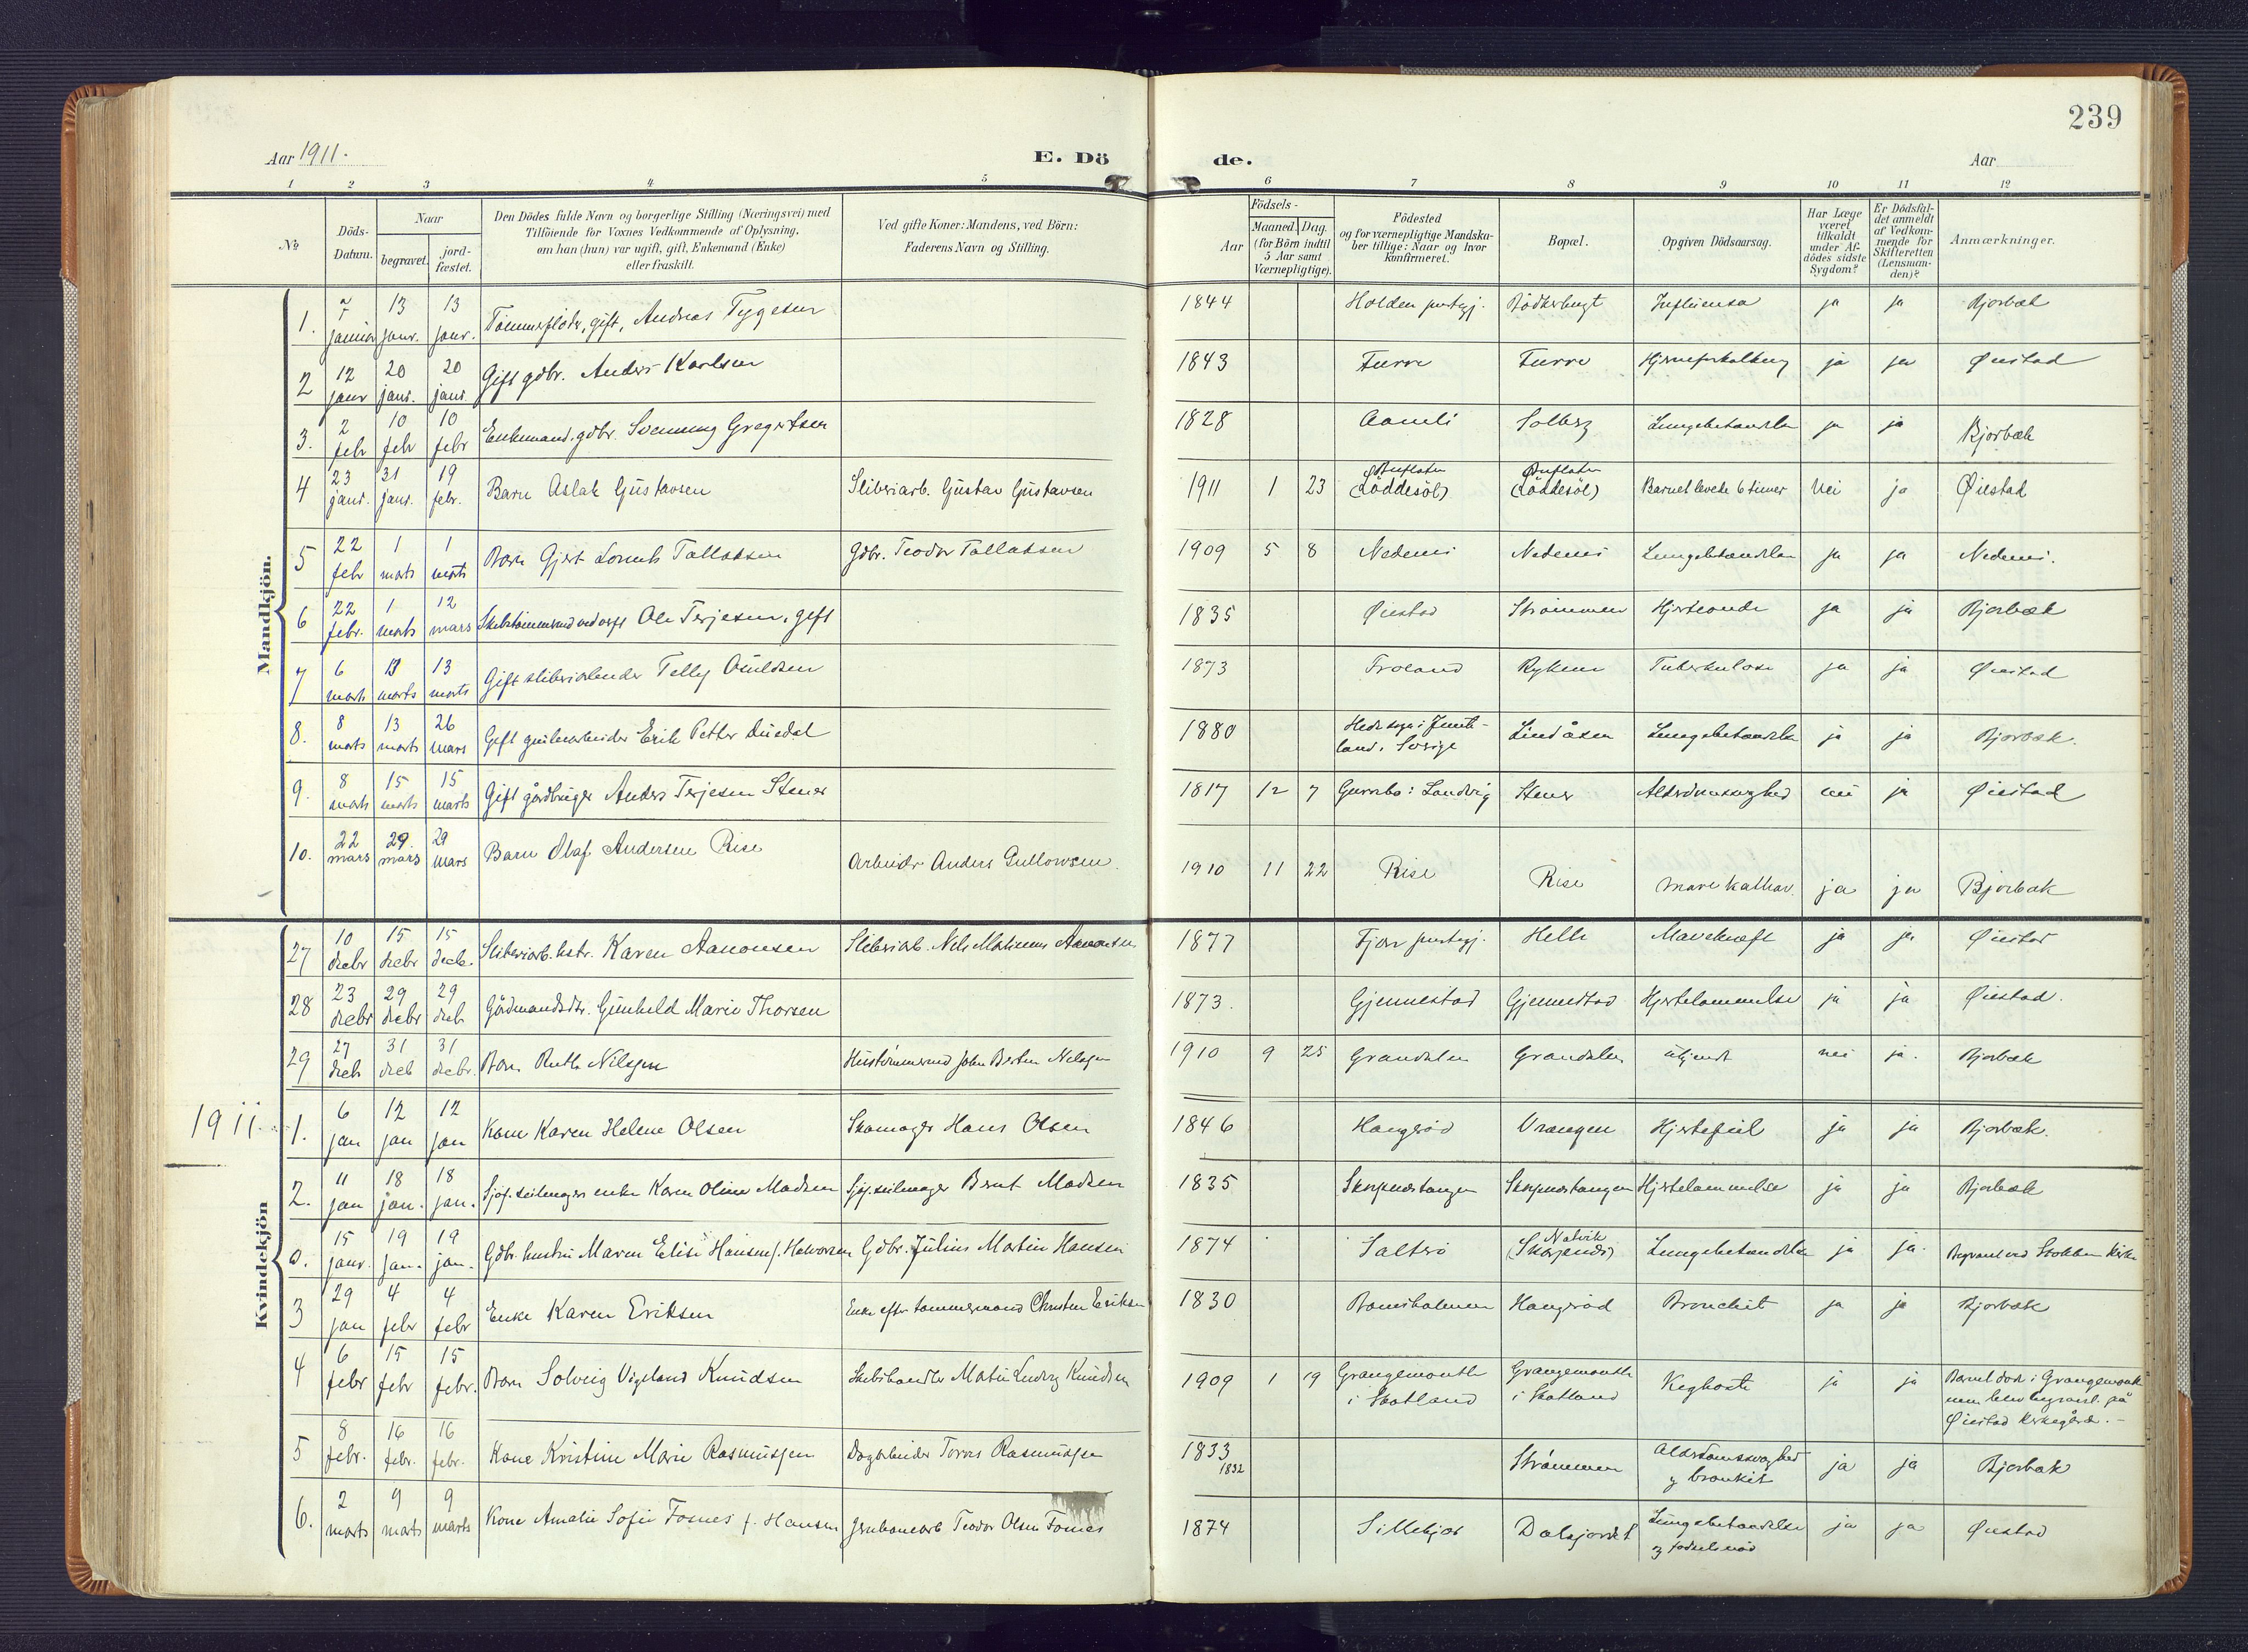 239
Aar 1911.
E. Dö de.
Aar
1 2 3 4 5 6 7 8 9 10 11 12
No
Döds-Datum.
Naar
begravet.
jord-fæstet.
Den Dödes fulde Navn og borgerlige Stilling (Næringsvei) med
Tilföiende for Voxnes Vedkommende af Oplysning,
om han (hun) var ugift, gift, Enkemand (Enke)
eller fraskilt.
Ved gifte Koner: Mandens, ved Börn:
Faderens Navn og Stilling.
Födsels-
Aar
Maaned. Dag.
(for Börn indtil
5 Aar samt
Værnepligtige).
Födested
og for værnepligtige Mandska-
ber tillige: Naar og hvor
konfirmeret.
Bopæl.
Opgiven Dödsaarsag.
Har Læge
været
tilkaldt
under Af-
dödes sidste
Sygdom?
Er Dödsfal-
det anmeldt
af Vedkom-
mende for
Skifteretten
(Lensman-
den)?
Anmærkninger.
Mandkjön.
1. 7 januar 13 janr. 13 janr. Tømmerfløder, gift, Andreas Tygesen 1844 Holden prstgj. Bödkerbugt Influensa ja ja Bjorbæk
2 12 janr 20 janr. 20 janr. Gift gdbr. Anders Karlsen 1843 Furre Furre Hjerneforkalkning ja ja Øiestad
3. 2 febr 10 febr 10 febr Enkemand, gdbr. Svenning Gregertsen 1828 Aamli Solberg Lungebetændelse ja ja Bjorbæk
4 23 janr. 31 janr. 19 febr. Barn Aslak Gustavsen Sliberiarb. Gustav Gustavsen 1911 1 23 (Löddesöl) (Löddesöl) Barnet levede 6 timer Nei ja Øiestad
5 22 febr 1 marts 1 marts Barn Gjert Tallaksen Gdbr. Teodor Tallaksen 1909 5 8 Nedenes Nedenes Lungebetændelse ja ja Nedenes.
6 22 febr. 1 marts 12 mars Ole Terjesen, gift 1835 Øiestad Strømmen Hjerteonde ja ja Bjorbæk
7 6 marts 13 marts 13 marts Gift sliberiarbeider Tellef Osuldsen 1873 Froland Rykene Tuberkulose ja ja Øiestad
8. 8 marts 13 marts 26 mars Gift Erik Petter Duedal 1880 i Jemt-
land, Sverige Lindåsen Lungebetændelse ja ja Bjorbæk.
9. 8 marts 15 marts 15 marts Gift gårdbruger Anders Terjesen Stener 1817 12 7 Landvig Stener Alderdomssvaghed nei ja Øiestad
10. 22 mars 29. mars 29 mars Barn Olaf Andersen Rise Arbeider Anders Gullowsen. 1910 11 22 Rise Rise mave kathar. ja ja Bjorbæk
Kvindekjön
27 10 decbr 15 decbr 15 decb. Sliberiarb. hstr. Karen Aanonsen Sliberiarb. Nels Aanonsen 1877 Fjære prstgj. Helle Mavekræft ja ja Øiestad
28 23 decbr 29 decbr 29 decb Gårdmandsdtr. Gunhild Marie Thorsen 1873. Gjennestad Gjennestad Hjertelammelse ja ja Øiestad.
29 27 decb 31 decb 31 decbr. Barn Ruth Nilsen Hustømmermd John Nilsen 1910 9 25 Grandalen Grandalen ukjendt nei ja. Bjorbæk
1911.
1. 6 jan 12 jan 12 jan Kone Karen Helene Olsen Skomager Hans Olsen 1846 Hangerød Vrengen Hjertefeil ja ja Bjorbæk.
2. 11 jan 18 jan. 18 jan. enke Karen Oline Madsen Bernt Madsen 1835 Skarpnestangen Skarpnestangen Hjertelammelse ja ja Bjorbæk
0. 15 janr. 19 jan. 19 jan. Gdbr. hustru Maren Elise Hansen f. Halvorsen Gdbr. Julius Martin Hansen 1874 Salterø Natvik
(Skarpnes) Lungebetændelse ja ja. Begravet ved Stokken kirke
3 29 jan 4 febr 4 febr Enke Karen Eriksen Enke efter tømmermand Christen Eriksen 1830 Hangerød Bronchit ja ja Bjorbæk
4 6 febr 15 febr 15 febr. Barn Solveig Vigeland Knudsen Skibshandler Knudsen 1909 1 19 Grangemouth
i Skotland Grangemouth
i Skotland Kighoste ja ja Barnet døde i Grangemouth
men blev begravet på
Øiestad kirkegård.
5 8 febr. 16 febr. 16 febr. Kone Kristine Marie Rasmussen Dagarbeider Rasmussen 1833 1832 Strømmen Alderdomssvaghed
og bronkit ja ja Bjorbæk
6. 2 marts 9 marts 9 marts Kone Amalie Sofie Fosnes f. Hansen Jernbanearb Teodor Olsen Fosnes 1874 Lungebetændelse
og fødselsnød ja ja Øiestad